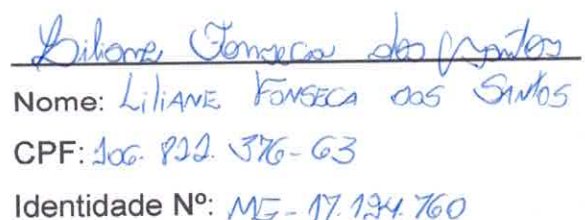 Liliane Fonseca dos Santos
Nome: LiliANE FONSECA DOS SANTOS
CPF: 106. 822. 376-63
Identidade Nº: MG-17.194.760